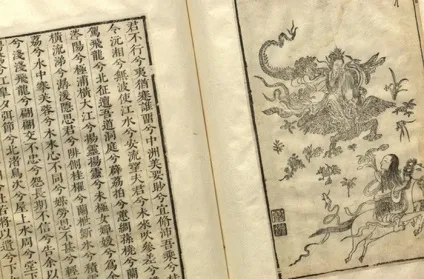 君不行兮夷猶蹇誰留兮中洲美要眇兮宜修沛吾乘兮
令沅湘兮無波使江水兮安流望夫君兮未來吹參差兮
駕飛龍兮北征邅吾道兮洞庭薜荔拍兮蕙綢蓀橈兮蘭
涔陽兮極浦橫大江兮揚靈揚靈兮未極女嬋媛兮為余
橫流涕兮潺湲隱思君兮陫側桂櫂兮蘭枻斲冰兮積
荔兮水中搴芙蓉兮木末心不同兮媒勞恩不甚兮輕
兮淺淺飛龍兮翩翩交不忠兮怨長期不信兮告余以
兮江皋夕弭節兮北渚鳥次兮屋上水周兮
將以遺兮下